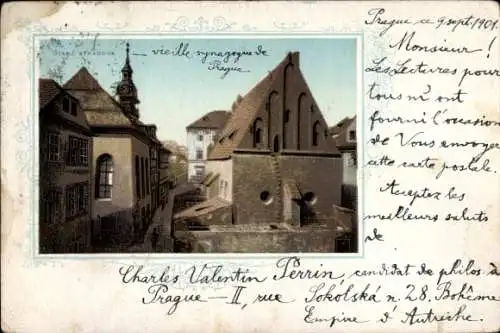 Prague ce 9 sept. 1901.
vieille synagogue de
Prague
Monsieur!
Les Lectures pour
tous m'ont
fourni l'occasion
de Vous envoyer
cette carte postale.
Acceptez les
meilleurs saluts
de
Charles Valentin Perrin, candidat de philos. à
Prague — II, rue Sokolská n. 28. Bohême
Empire d'Autriche.